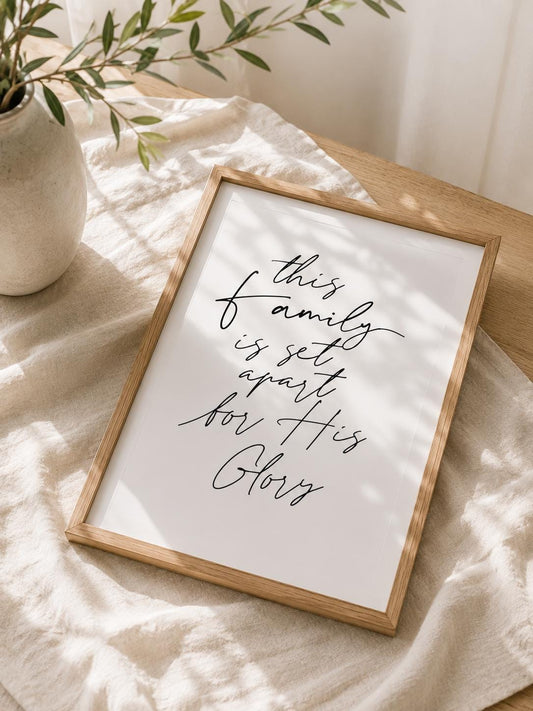 this
Family
is set
apart
for His
Glory